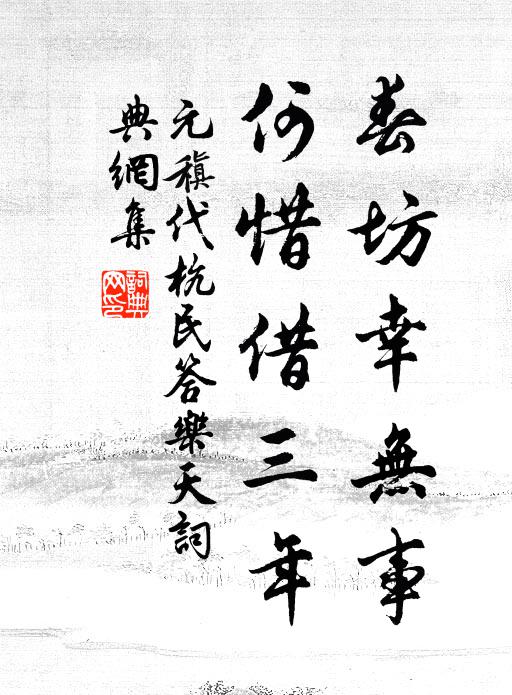 春坊幸無事
何惜借三年
元稹代杭民答樂天詞
典網集
詞典網印